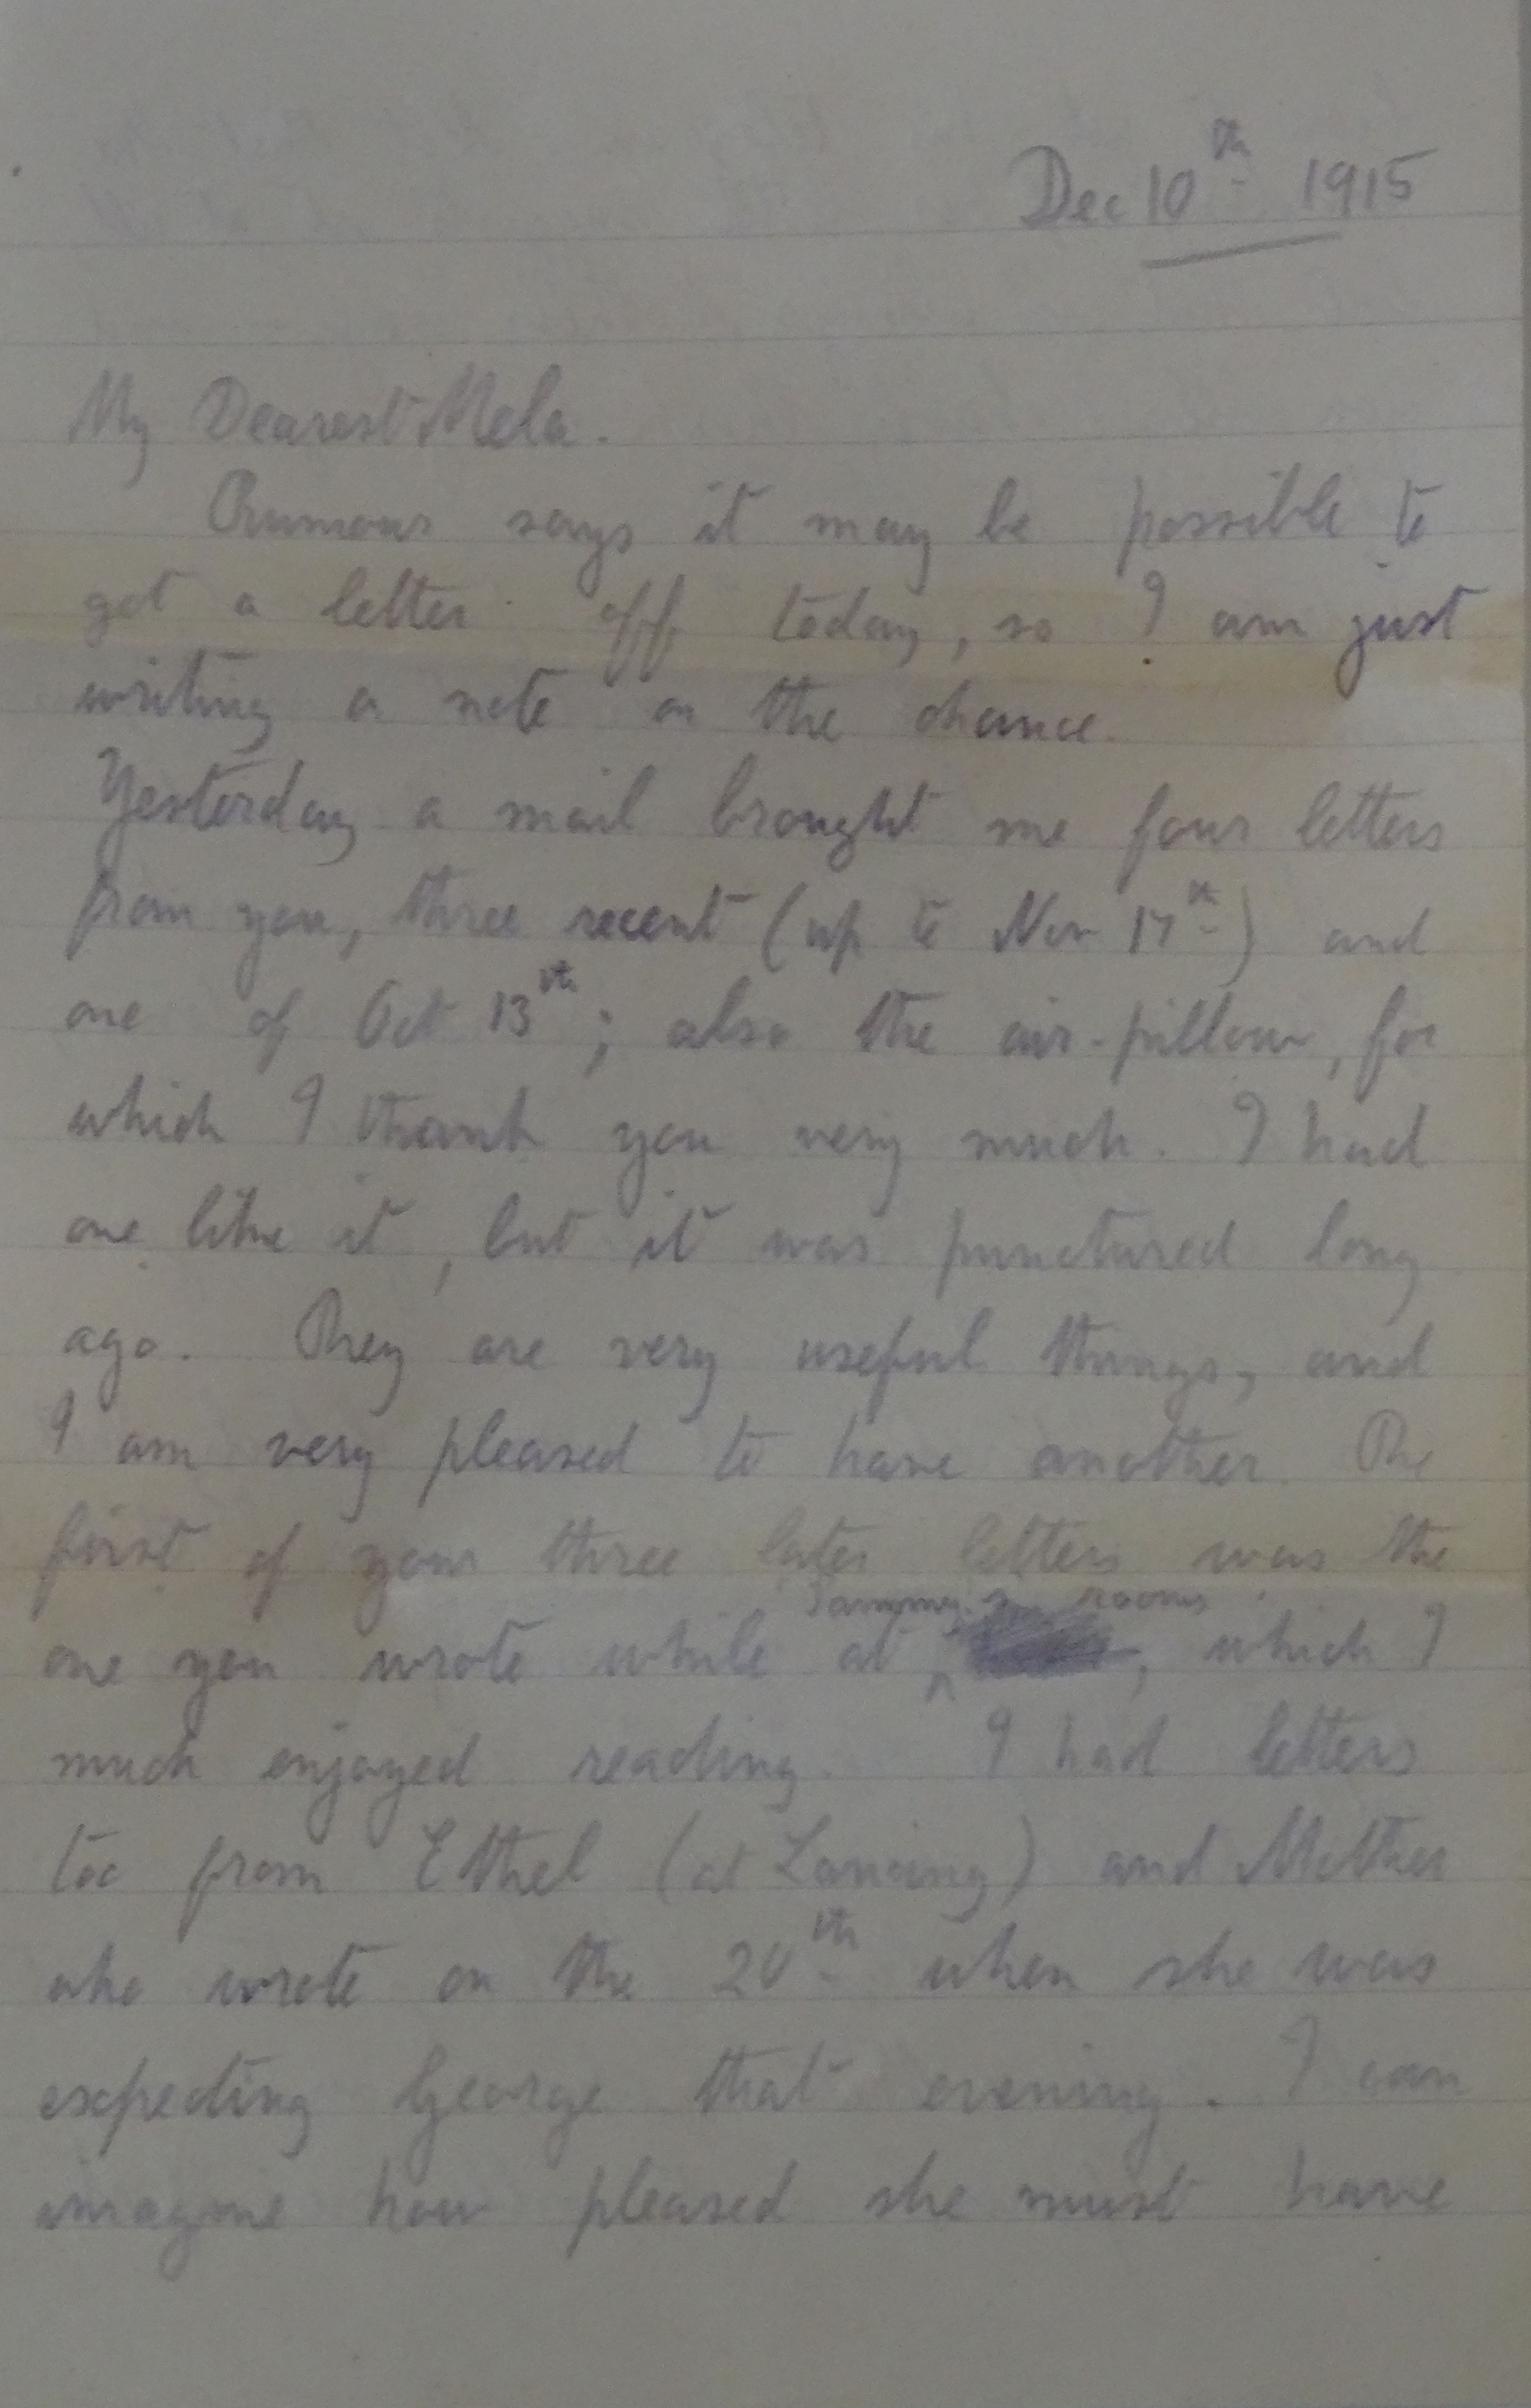 Dec 10th 1915
My Dearest Mela.
Rumour says it may be possible to
get a letter off today, so I am just
writing a note on the chance.
Yesterday a mail brought me four letters
from you, three recent (up to Nov 17th) and
one of Oct 13th; also the air-pillow, for
which I thank you very much. I had
one like it, but it was punctured long
ago. They are very useful things, and
I am very pleased to have another. The
first of your three later letters was the
Sammy's rooms
one you wrote while at , which I
much enjoyed reading. I had letters
too from Ethel (at Lancing) and Mother
who wrote on the 20th when she was
expecting George that evening. I can
imagine how pleased she must have